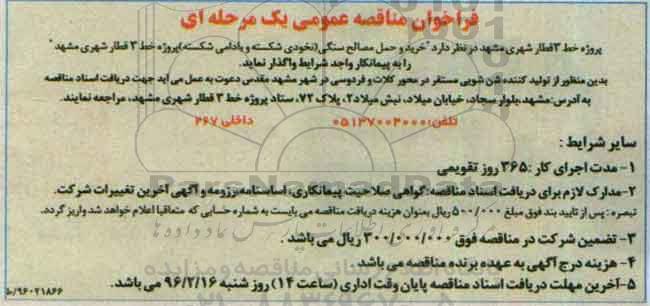 فراخوان مناقصه عمومی یک مرحله ای
پروژه خط ۳ قطار شهری مشهد در نظر دارد "خرید و حمل مصالح سنگی (نخودی شکسته و بادامی شکسته) پروژه خط ۳ قطار شهری مشهد"
را به پیمانکار واجد شرایط واگذار نماید.
بدین منظور از تولید کننده شن شویی مستقر در محور کلات و فردوسی در شهر مشهد مقدس دعوت به عمل می آید جهت دریافت اسناد مناقصه
به آدرس: مشهد، بلوار سجاد، خیابان میلاد، نبش میلاد ۲، پلاک ۷۲، ستاد پروژه خط ۳ قطار شهری مشهد، مراجعه نمایند.
تلفن: ۰۵۱۳۷۰۰۴۰۰۰ داخلی ۴۶۷
سایر شرایط :
۱- مدت اجرای کار : ۳۶۵ روز تقویمی
۲- مدارک لازم برای دریافت اسناد مناقصه: گواهی صلاحیت پیمانکاری، اساسنامه، رزومه و آگهی آخرین تغییرات شرکت.
تبصره : پس از تایید بند فوق مبلغ ۵۰۰/۰۰۰ ریال بعنوان هزینه دریافت مناقصه می بایست به شماره حسابی که متعاقبا اعلام خواهد شد واریز گردد.
۳- تضمین شرکت در مناقصه فوق ۳۰۰/۰۰۰/۰۰۰ ریال می باشد .
۴- هزینه درج آگهی به عهده برنده مناقصه می باشد
۵- آخرین مهلت دریافت اسناد مناقصه پایان وقت اداری (ساعت ۱۴) روز شنبه ۹۶/۲/۱۶ می باشد.
۹۶۰۲۱۸۶۶/ط